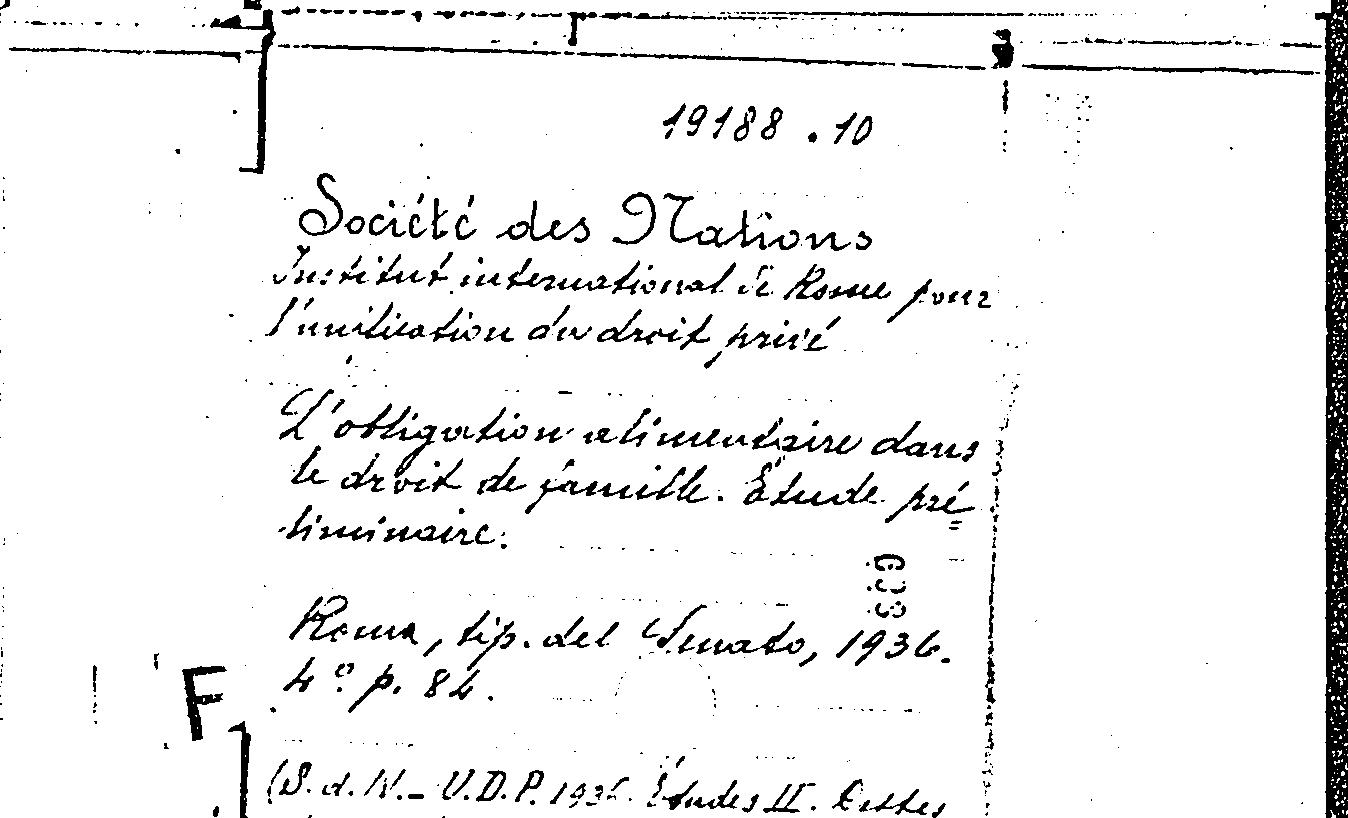 19188.10
Société des Nations
Institut international de Rome pour
l'unification du droit privé
L'obligation alimentaire dans
le droit de famille. Étude pré=
liminaire.
Roma, tip. del Senato, 1936.
4º p. 84.
F
(S. d. N. - U.D.P. 1936. Études II.